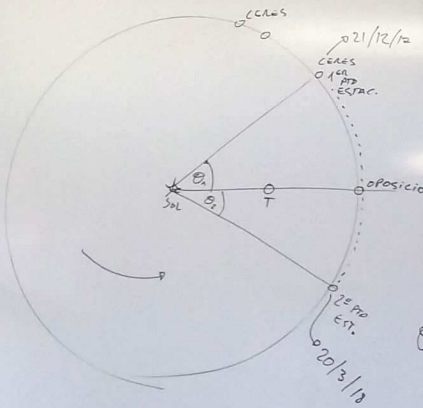 CERES
21/12/17
CERES
1ER PTO
ESTAC.
θ1
SOL
θ2
T
OPOSICIÓ
2º PTO
EST.
20/3/18